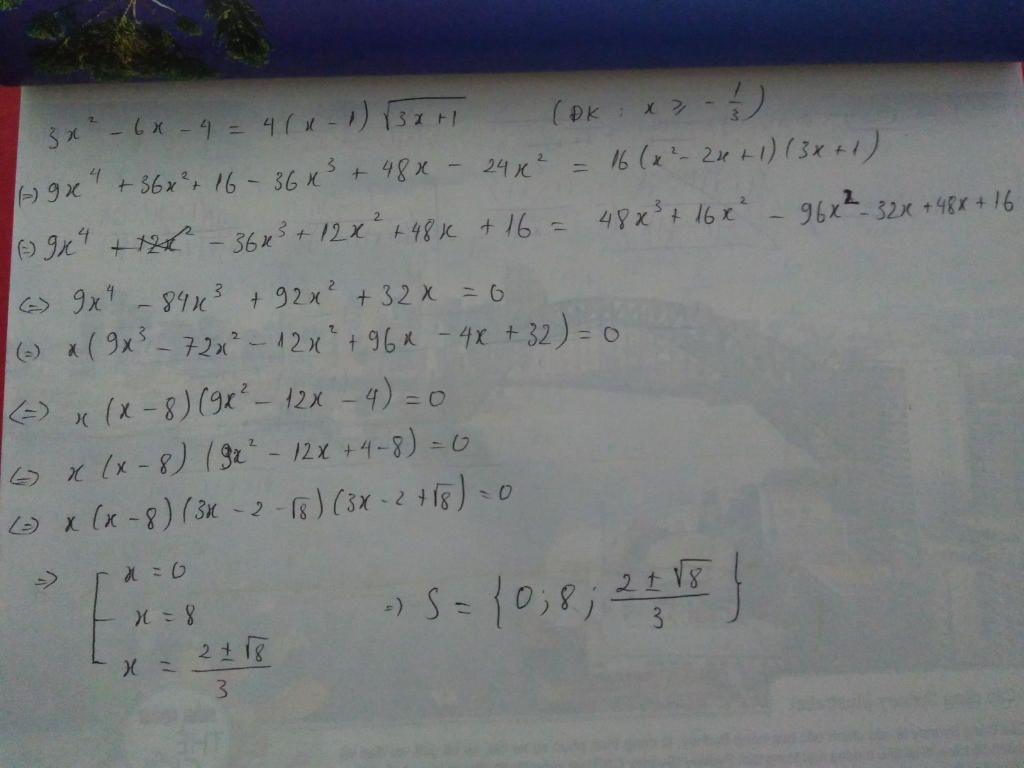 3x² - 6x - 4 = 4(x - 1)√(3x+1) (ĐK : x ≥ -1/3)
(=) 9x⁴ + 36x² + 16 - 36x³ + 48x - 24x² = 16(x² - 2x + 1)(3x + 1)
(=) 9x⁴ + 12x² - 36x³ + 12x² + 48x + 16 = 48x³ + 16x² - 96x² - 32x + 48x + 16
(=) 9x⁴ - 84x³ + 92x² + 32x = 0
(=) x(9x³ - 72x² - 12x² + 96x - 4x + 32) = 0
(=) x(x - 8)(9x² - 12x - 4) = 0
(=) x(x - 8)(9x² - 12x + 4 - 8) = 0
(=) x(x - 8)(3x - 2 - √8)(3x - 2 + √8) = 0
=> [ x = 0
x = 8
x = (2 ± √8)/3
=) S = {0; 8; (2 ± √8)/3}